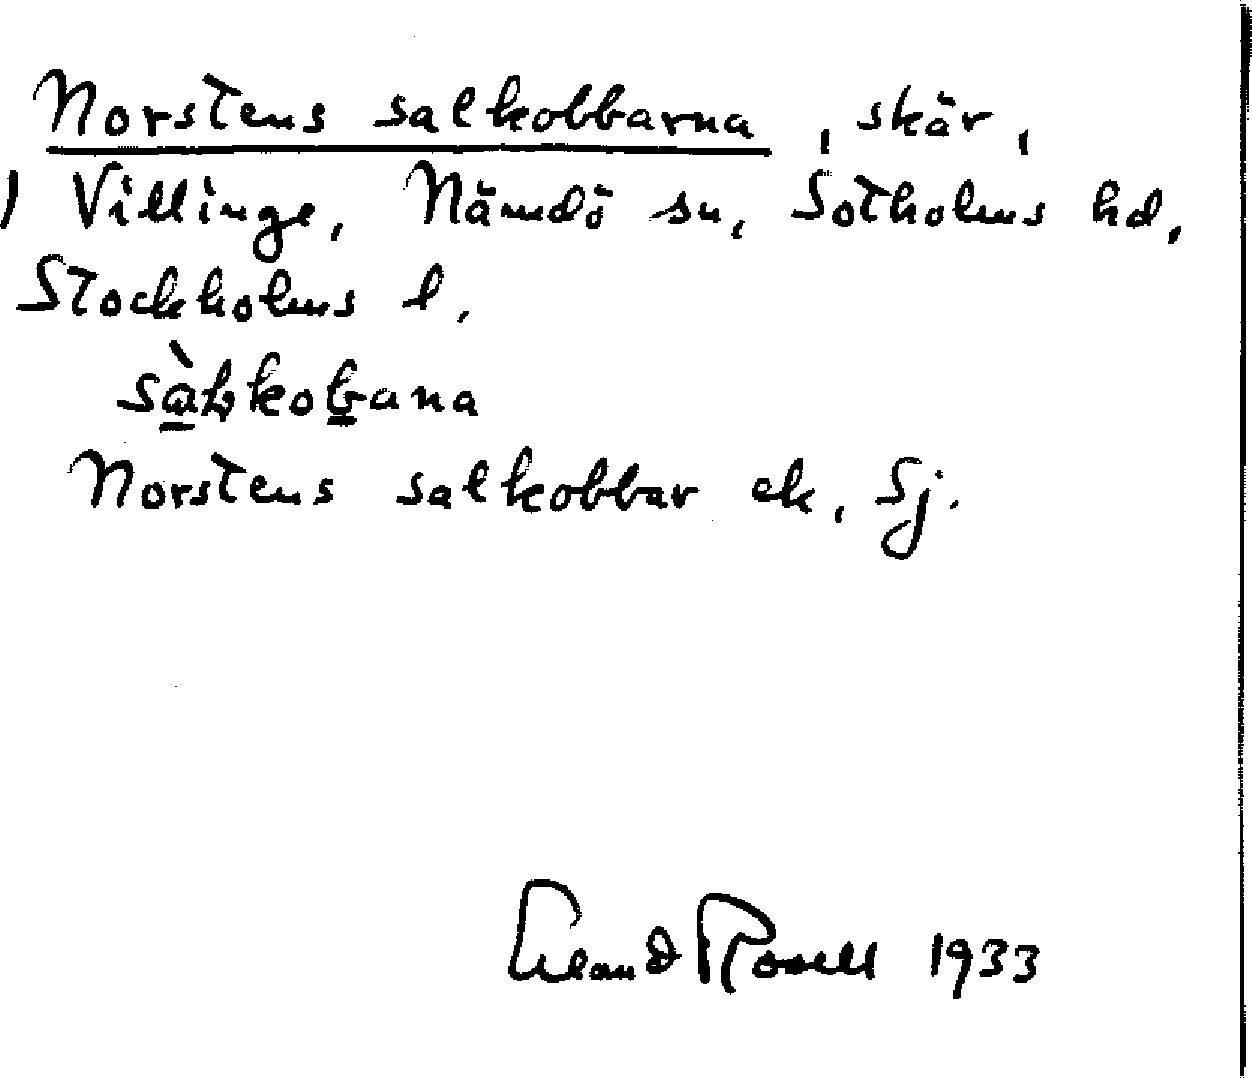 Norstens salkobbarna, skär,
) Villinge, Nämdö sn, Sotholms hd,
Stockholms l.
sàlkobana
Norstens salkobbar ek, Sj.
Erland Rosell 1933